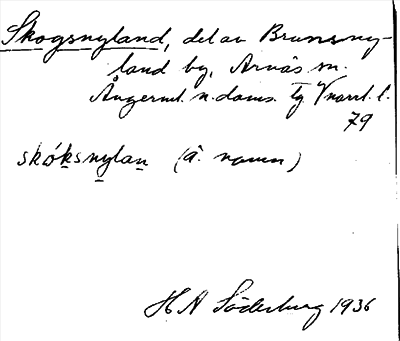 Skogsnyland, del av Brunsny-
land by, Arnäs sn.
Ångerml. n. doms. tg Vnorrl. l.
79
skóksnylaṉ (å. namn)
H A Söderburg 1936